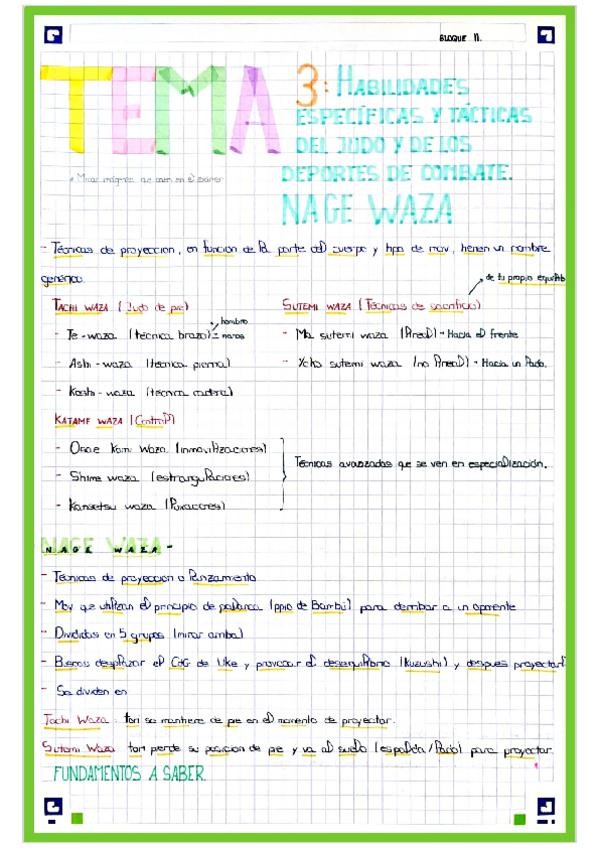 BLOQUE II.
TEMA 3: HABILIDADES
ESPECÍFICAS Y TÁCTICAS
DEL JUDO Y DE LOS
DEPORTES DE COMBATE.
* Mirar imágenes que caen en el examen
NAGE WAZA
- Técnicas de proyeccion, en funcion de la parte del cuerpo y tipo de mov, tienen un nombre
generico.
de tu propio equilib
TACHI WAZA (Judo de pie)
SUTEMI WAZA (Técnicas de sacrificio)
hombro
- Te-waza (técnica brazo) = manos
- Ma sutemi waza (Areal) - Hacia el frente
- Ashi-waza (técnica pierna)
- Yoko sutemi waza (no Areal) - Hacia un lado.
- Koshi-waza (técnica cadera)
KATAME WAZA (Control)
- Osae Komi Waza (inmovilizaciones)
- Shime waza (estrangulaciones)
Técnicas avanzadas que se ven en especialización.
- Kansetsu waza (luxaciones)
NAGE WAZA -
- Técnicas de proyección o lanzamiento
- Mov que utilizan el principio de palanca (ppio de Bambú) para derribar a un oponente
- Divididas en 5 grupos (mirar arriba)
- Buscas desplazar el CdG de Uke y provocar el desequilibrio (Kuzushi) y despues proyectarl
- Se dividen en
Tachi Waza: tori se mantiene de pie en el momento de proyectar.
Sutemi Waza tori pierde su posicion de pie y va al suelo (espalda/lado) para proyectar.
FUNDAMENTOS A SABER.